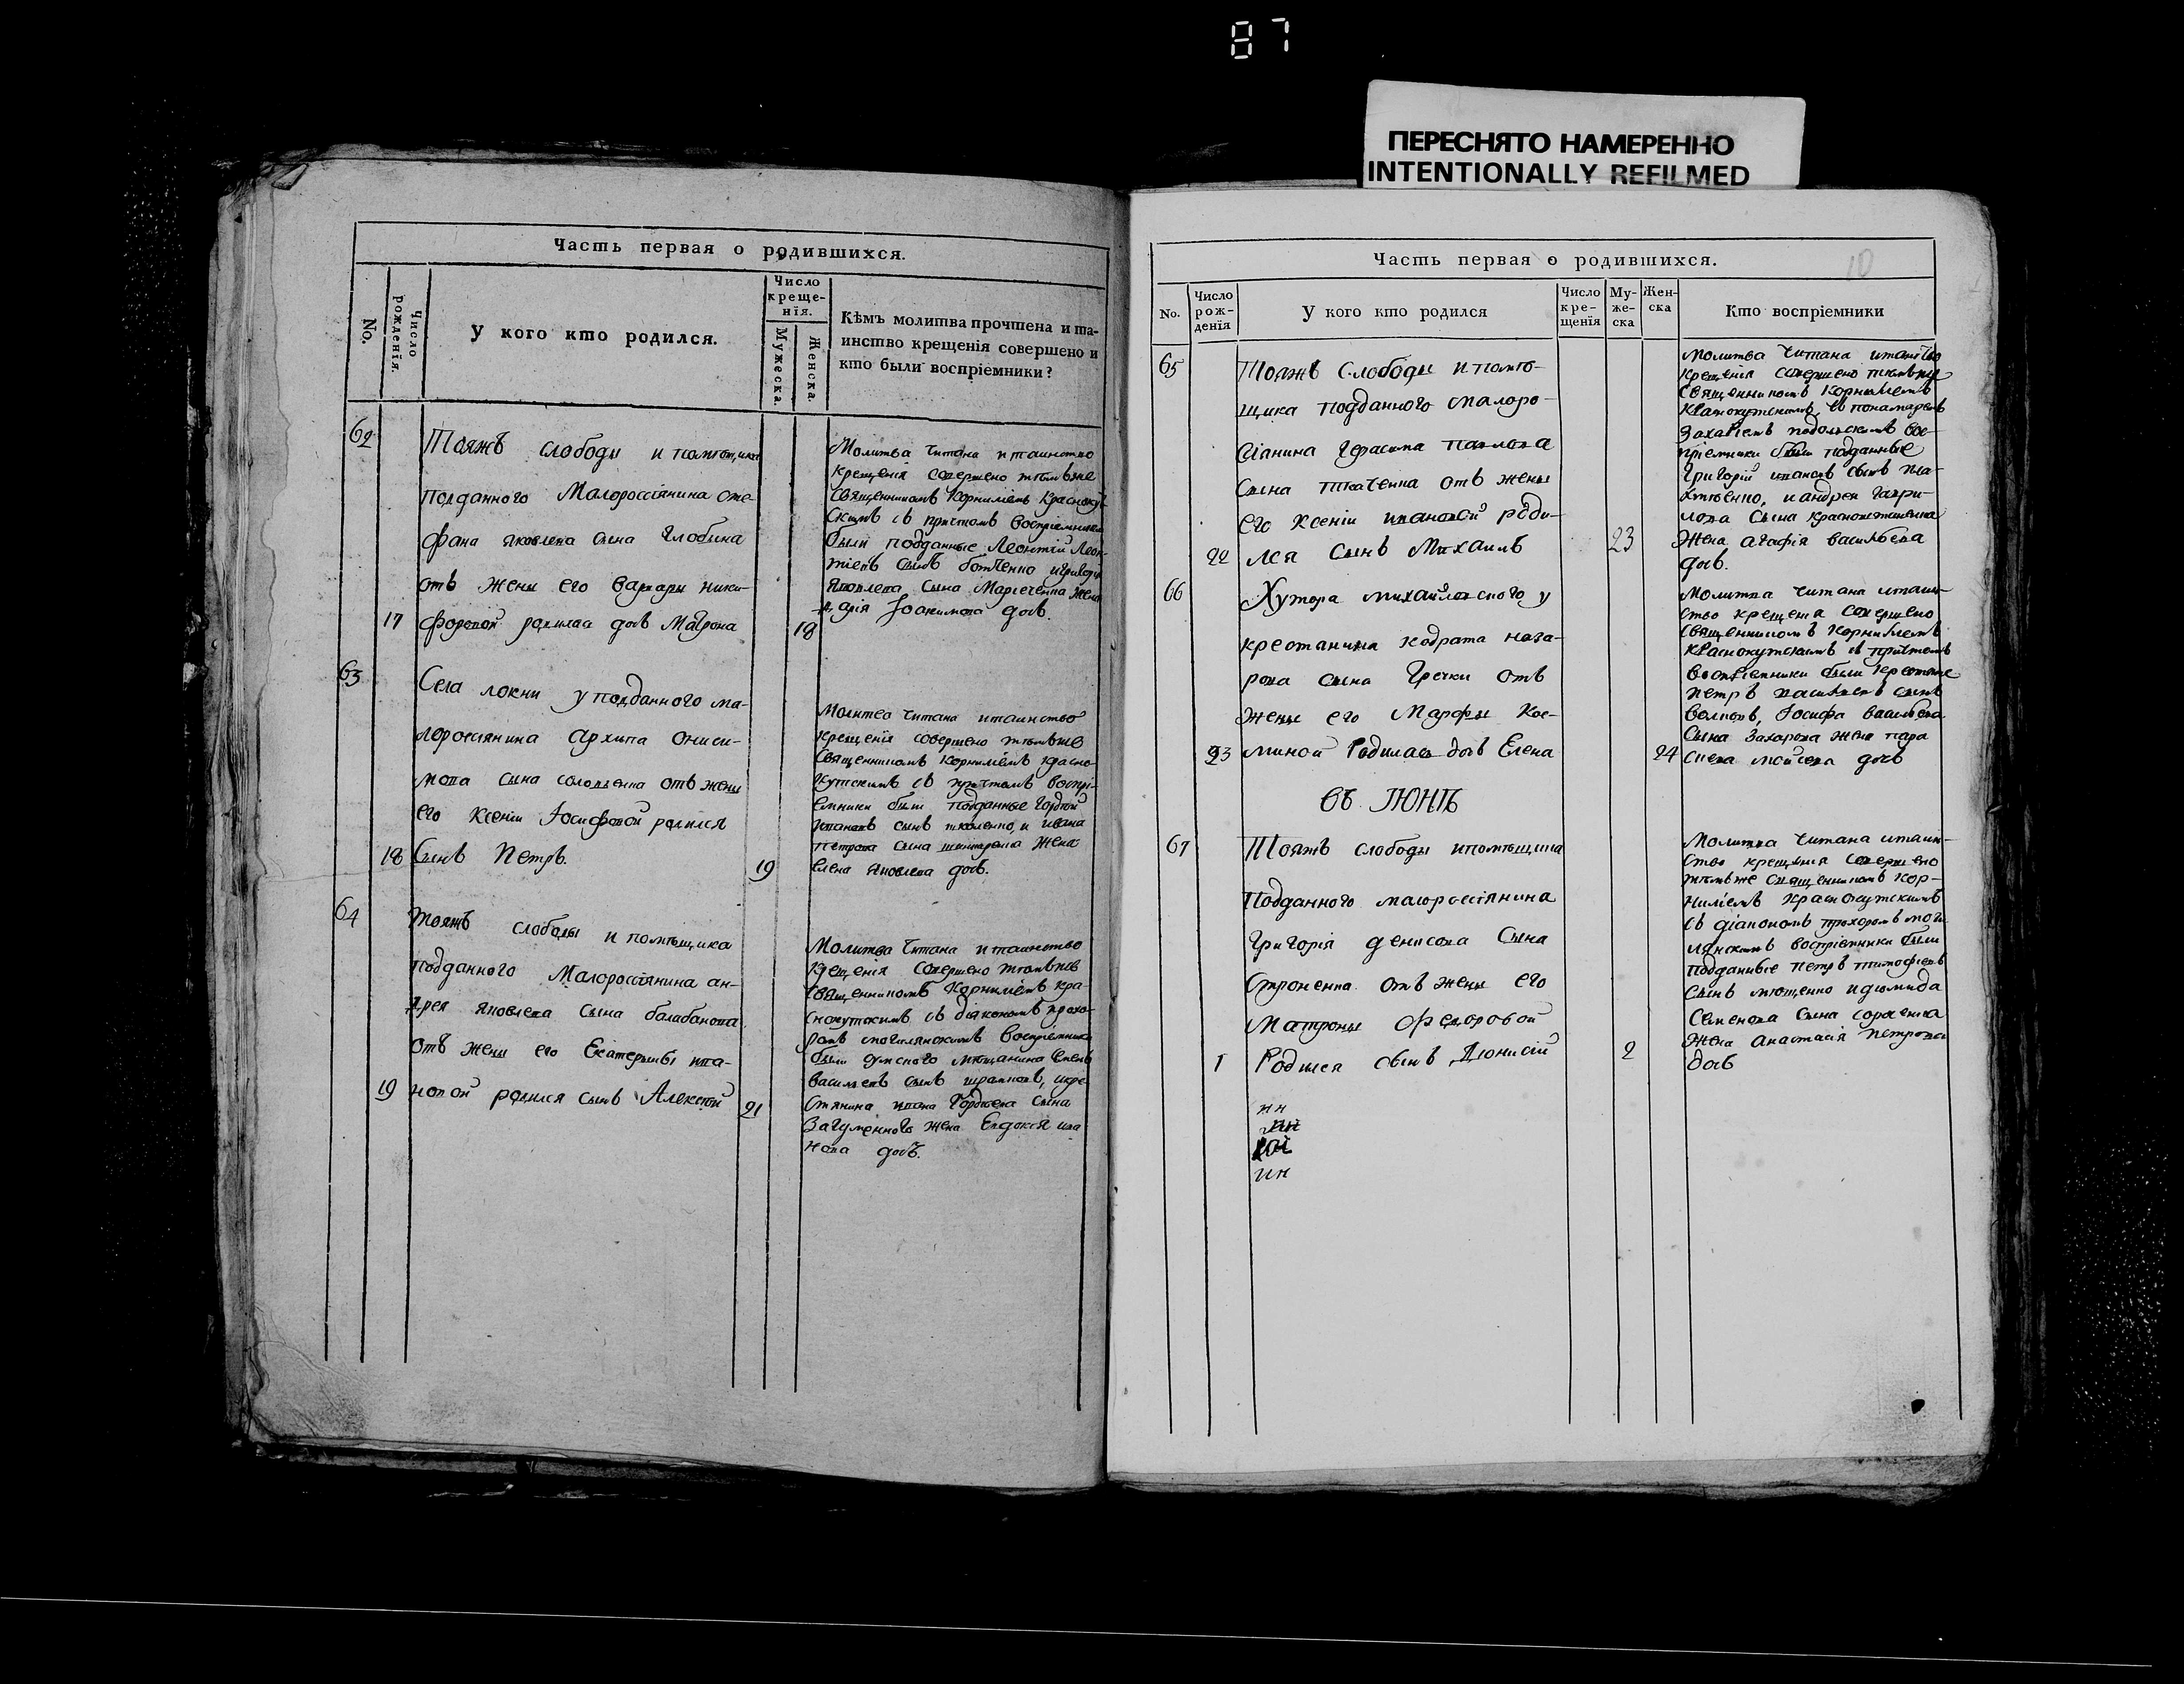 87
ПЕРЕСНЯТО НАМЕРЕННО
INTENTIONALLY REFILMED
Часть первая о родившихся.
No.
Число рожденія.
У кого кто родился.
Число
креще-
нія.
Мужеска.
Женска.
Кѣмъ молитва прочтена и та-
инство крещенія совершено и
кто были воспріемники?
62
Тояжъ слободы и помѣщика
подданного Малороссіянина сте-
фана яковлева сына Глобина
отъ жены его варвары ники-
17 форовой родилась дочь Матрона 18
Молитва читана и таинство
крещенія совершено тѣмъже
Священникомъ Корниліемъ Красноку-
скимъ съ причтомъ воспріемники
были подданные Леонтій Леон-
тіевъ сынъ
яковлева сына жена
дарія Іоакимова дочь.
63
Села локни у подданного ма-
лороссіянина Архипа ониси-
мова сына отъ жены
его Ксеніи Іосифовой родился
18 Сынъ Петръ. 19
Молитва читана и таинство
крещенія совершено тѣмъже
Священникомъ Корниліемъ красно-
кутскимъ съ причтомъ воспрі-
емники были подданные Гордѣй
сынъ и ивана
петрова сына жена
елена яковлева дочь.
64
тояжъ слободы и помѣщика
подданного Малороссіянина ан-
дрея яковлева сына балабанова
отъ жены его Екатерины ива-
19 новой родился сынъ Алексѣй 21
Молитва читана и таинство
крещенія совершено тѣмъже
Священникомъ Корниліемъ кра-
снокутскимъ съ діакономъ прохо-
ромъ могилянскимъ воспріемники
были мѣщанина
васильевъ сынъ и кре-
стянина ивана Гордѣева сына
Загуменного жена Евдокія ива
нова дочь.
Часть первая о родившихся.
10
No.
Число
рож-
денія
У кого кто родился
Число
кре-
щенія
Му-
же-
ска
Жен-
ска
Кто воспріемники
65
Тояжъ Слободы и помѣ-
щика подданного малоро-
сіанина Герасима павлова
сына ткаченка отъ жены
его ксеніи ивановой роди-
22 лся сынъ Михаилъ 23
молитва читана и таинство
крещенія совершено тѣмъже
Священникомъ Корниліемъ
краснокутскимъ съ понамаремъ
Захаріемъ подольскимъ вос-
пріемники были подданные
Григорій ивановъ сынъ
и андрея гаври-
лова сына
жена агафія васильева
дочь.
66
Хутора михайловского у
крестанина кодрата наза-
рова сына Гречки отъ
жены его Марфы Кос-
23 миной Родилась дочь Елена 24
Молитва читана и таин-
ство крещенія совершено
Священникомъ Корниліемъ
краснокутскимъ съ причтомъ
воспріемники были крестяне
петръ васильевъ сынъ
Іосифа васильева
сына Захарова жена пара
скева моисеева дочь
въ ІЮНѢ
67
Тояжъ слободы и помѣщика
Подданного малороссіянина
Григорія денисова сына
отъ жены его
Матроны Федоровой
1 Родился сынъ Діонисій 2
Молитва читана и таин-
ство крещенія совершено
тѣмъже священникомъ Кор-
ниліемъ краснокутскимъ
съ діакономъ прохоромъ моги
лянскимъ воспріемники были
подданные петръ тимофіевъ
сынъ и діомида
Семенова сына
жена анастасія петрова
дочь
ин
ин